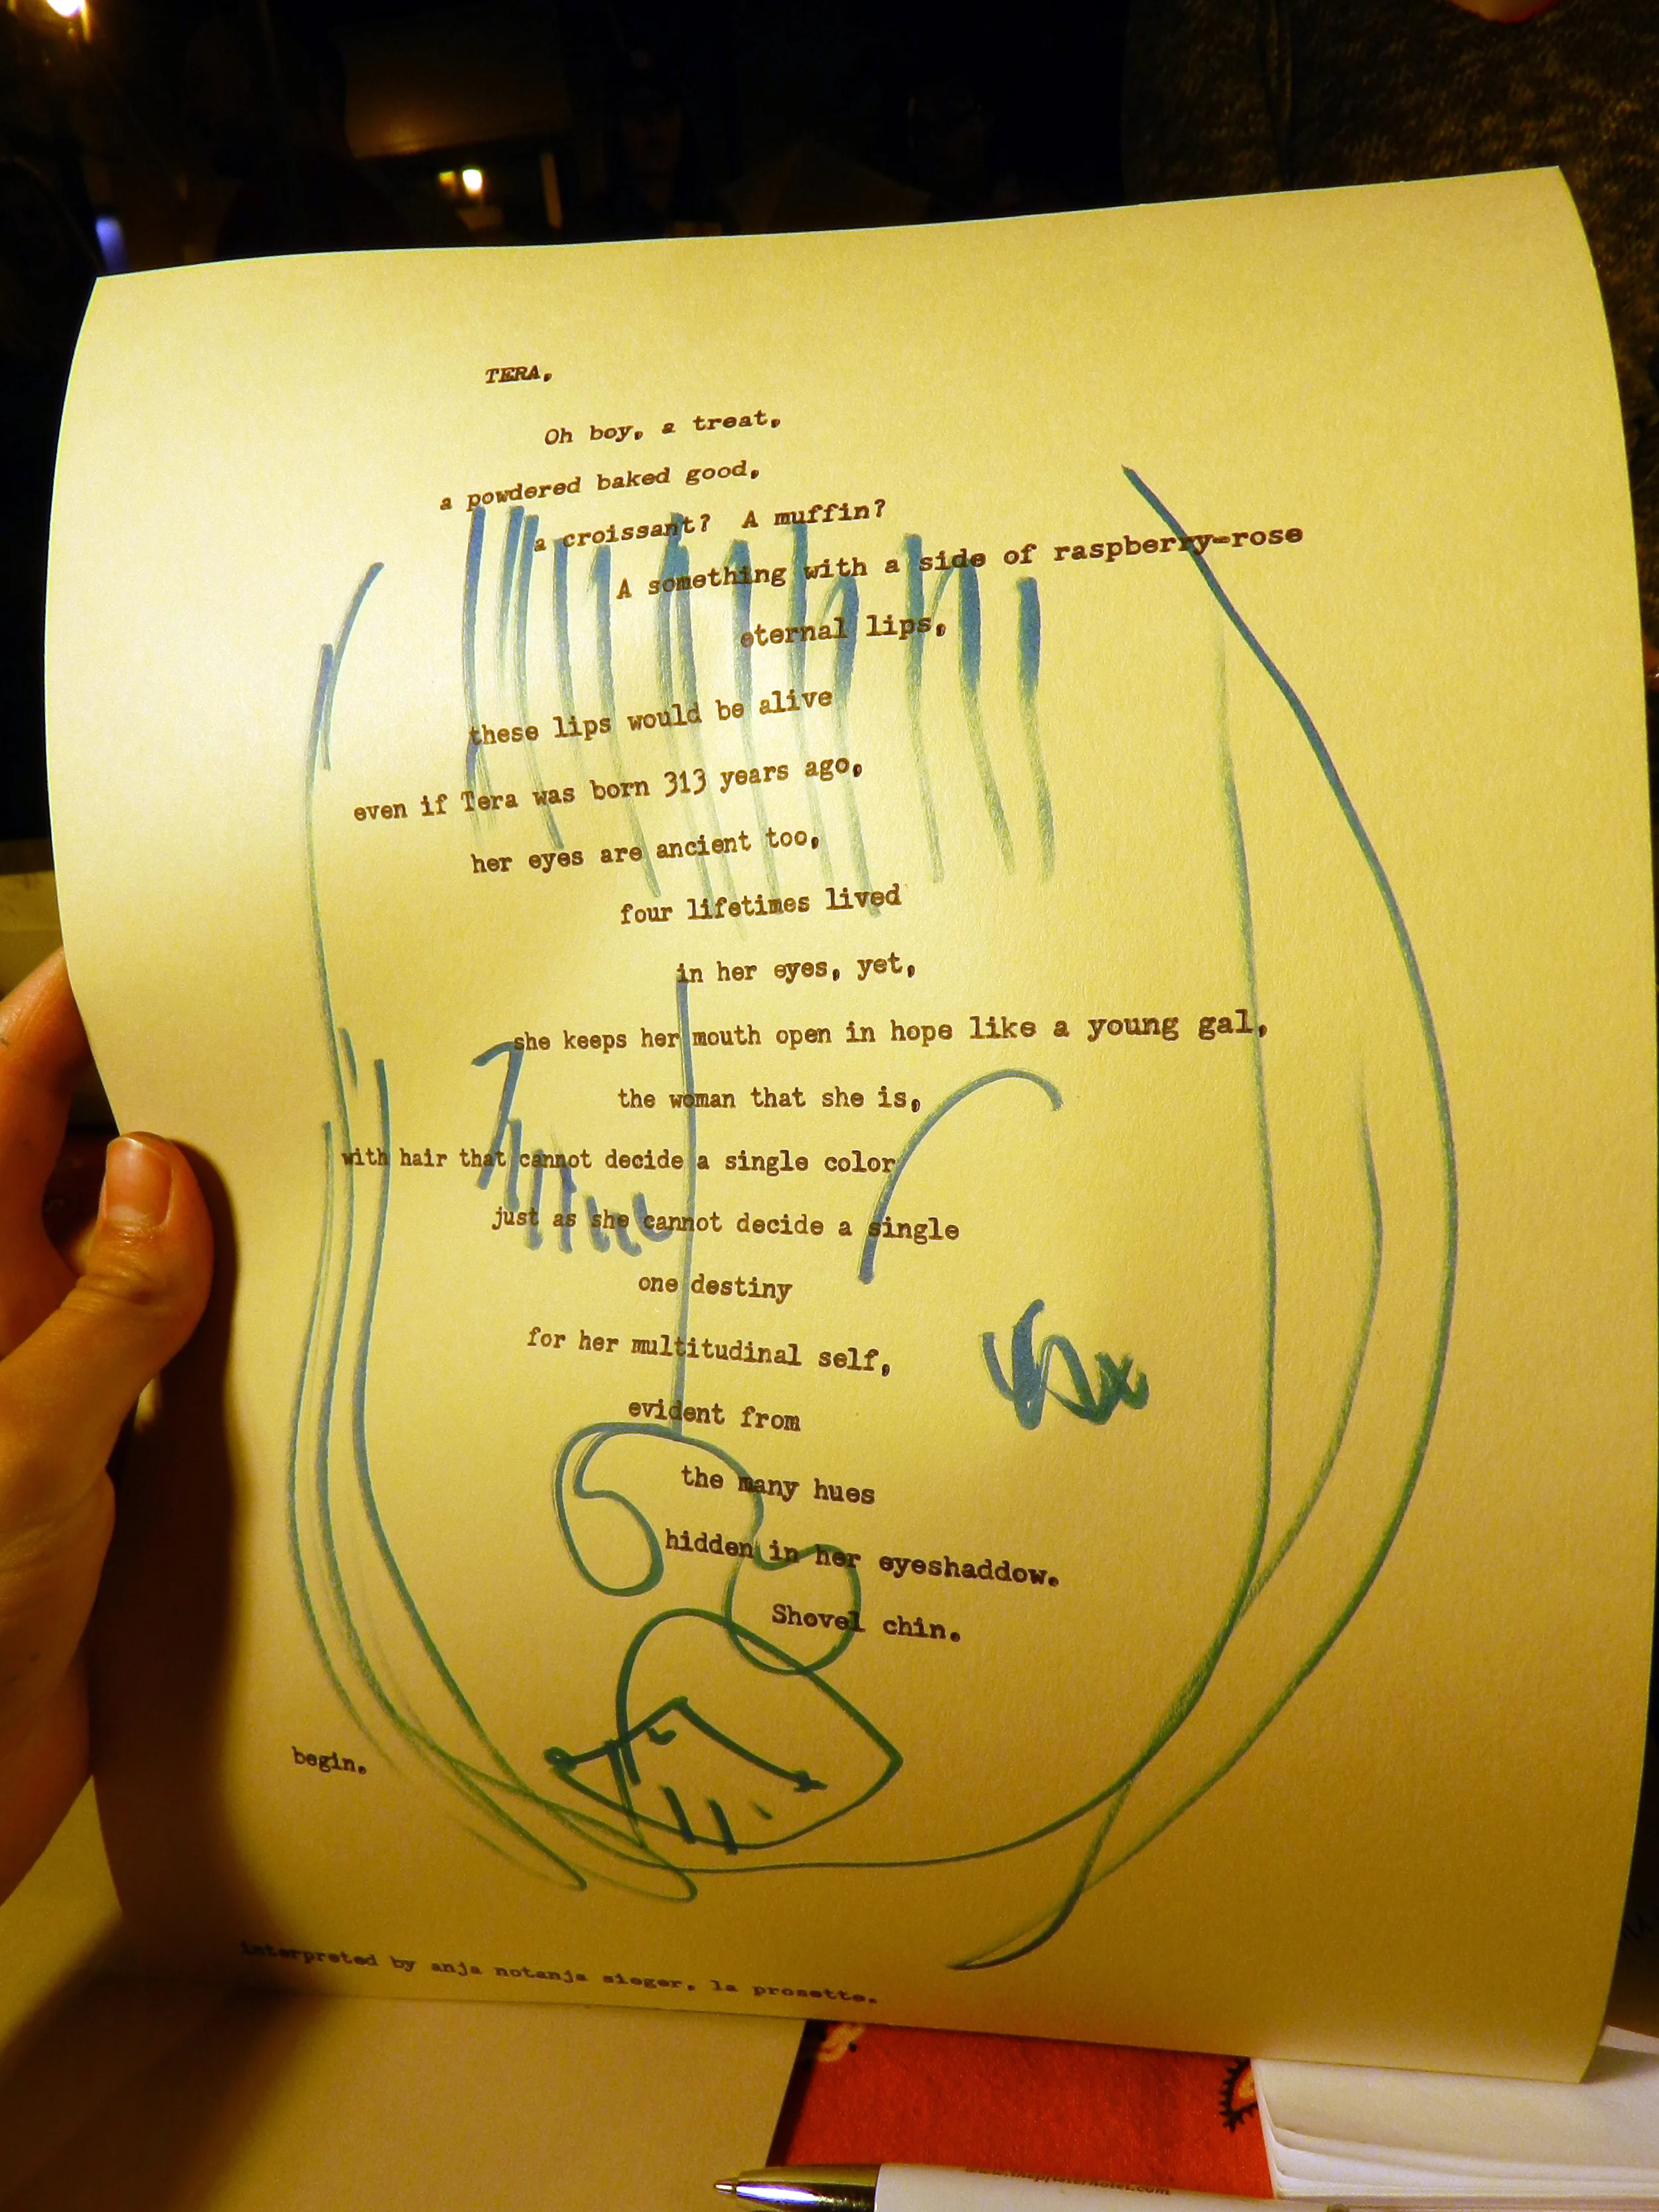 TERA,
Oh boy, a treat,
a powdered baked good,
a croissant? A muffin?
A something with a side of raspberry-rose
eternal lips,
these lips would be alive
even if Tera was born 313 years ago,
her eyes are ancient too,
four lifetimes lived
in her eyes, yet,
she keeps her mouth open in hope like a young gal,
the woman that she is,
with hair that cannot decide a single color
just as she cannot decide a single
one destiny
for her multitudinal self,
evident from
the many hues
hidden in her eyeshaddow.
Shovel chin.
begin.
interpreted by anja notanja sieger, la prosette.